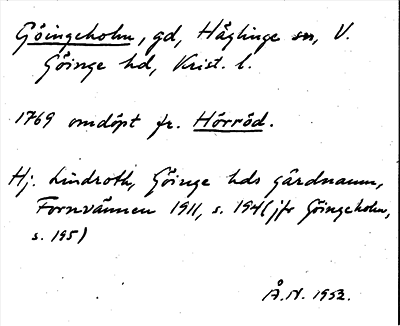 Göingeholm, gd, Häglinge sn, V.
Göinge hd, Krist. l.
1769 omdöpt fr. Hörröd.
Hj. Lindroth, Göinge hds gårdnamn,
Fornvännen 1911, s. 194 (jfr Göingeholm,
s. 195)
Å.N. 1952.